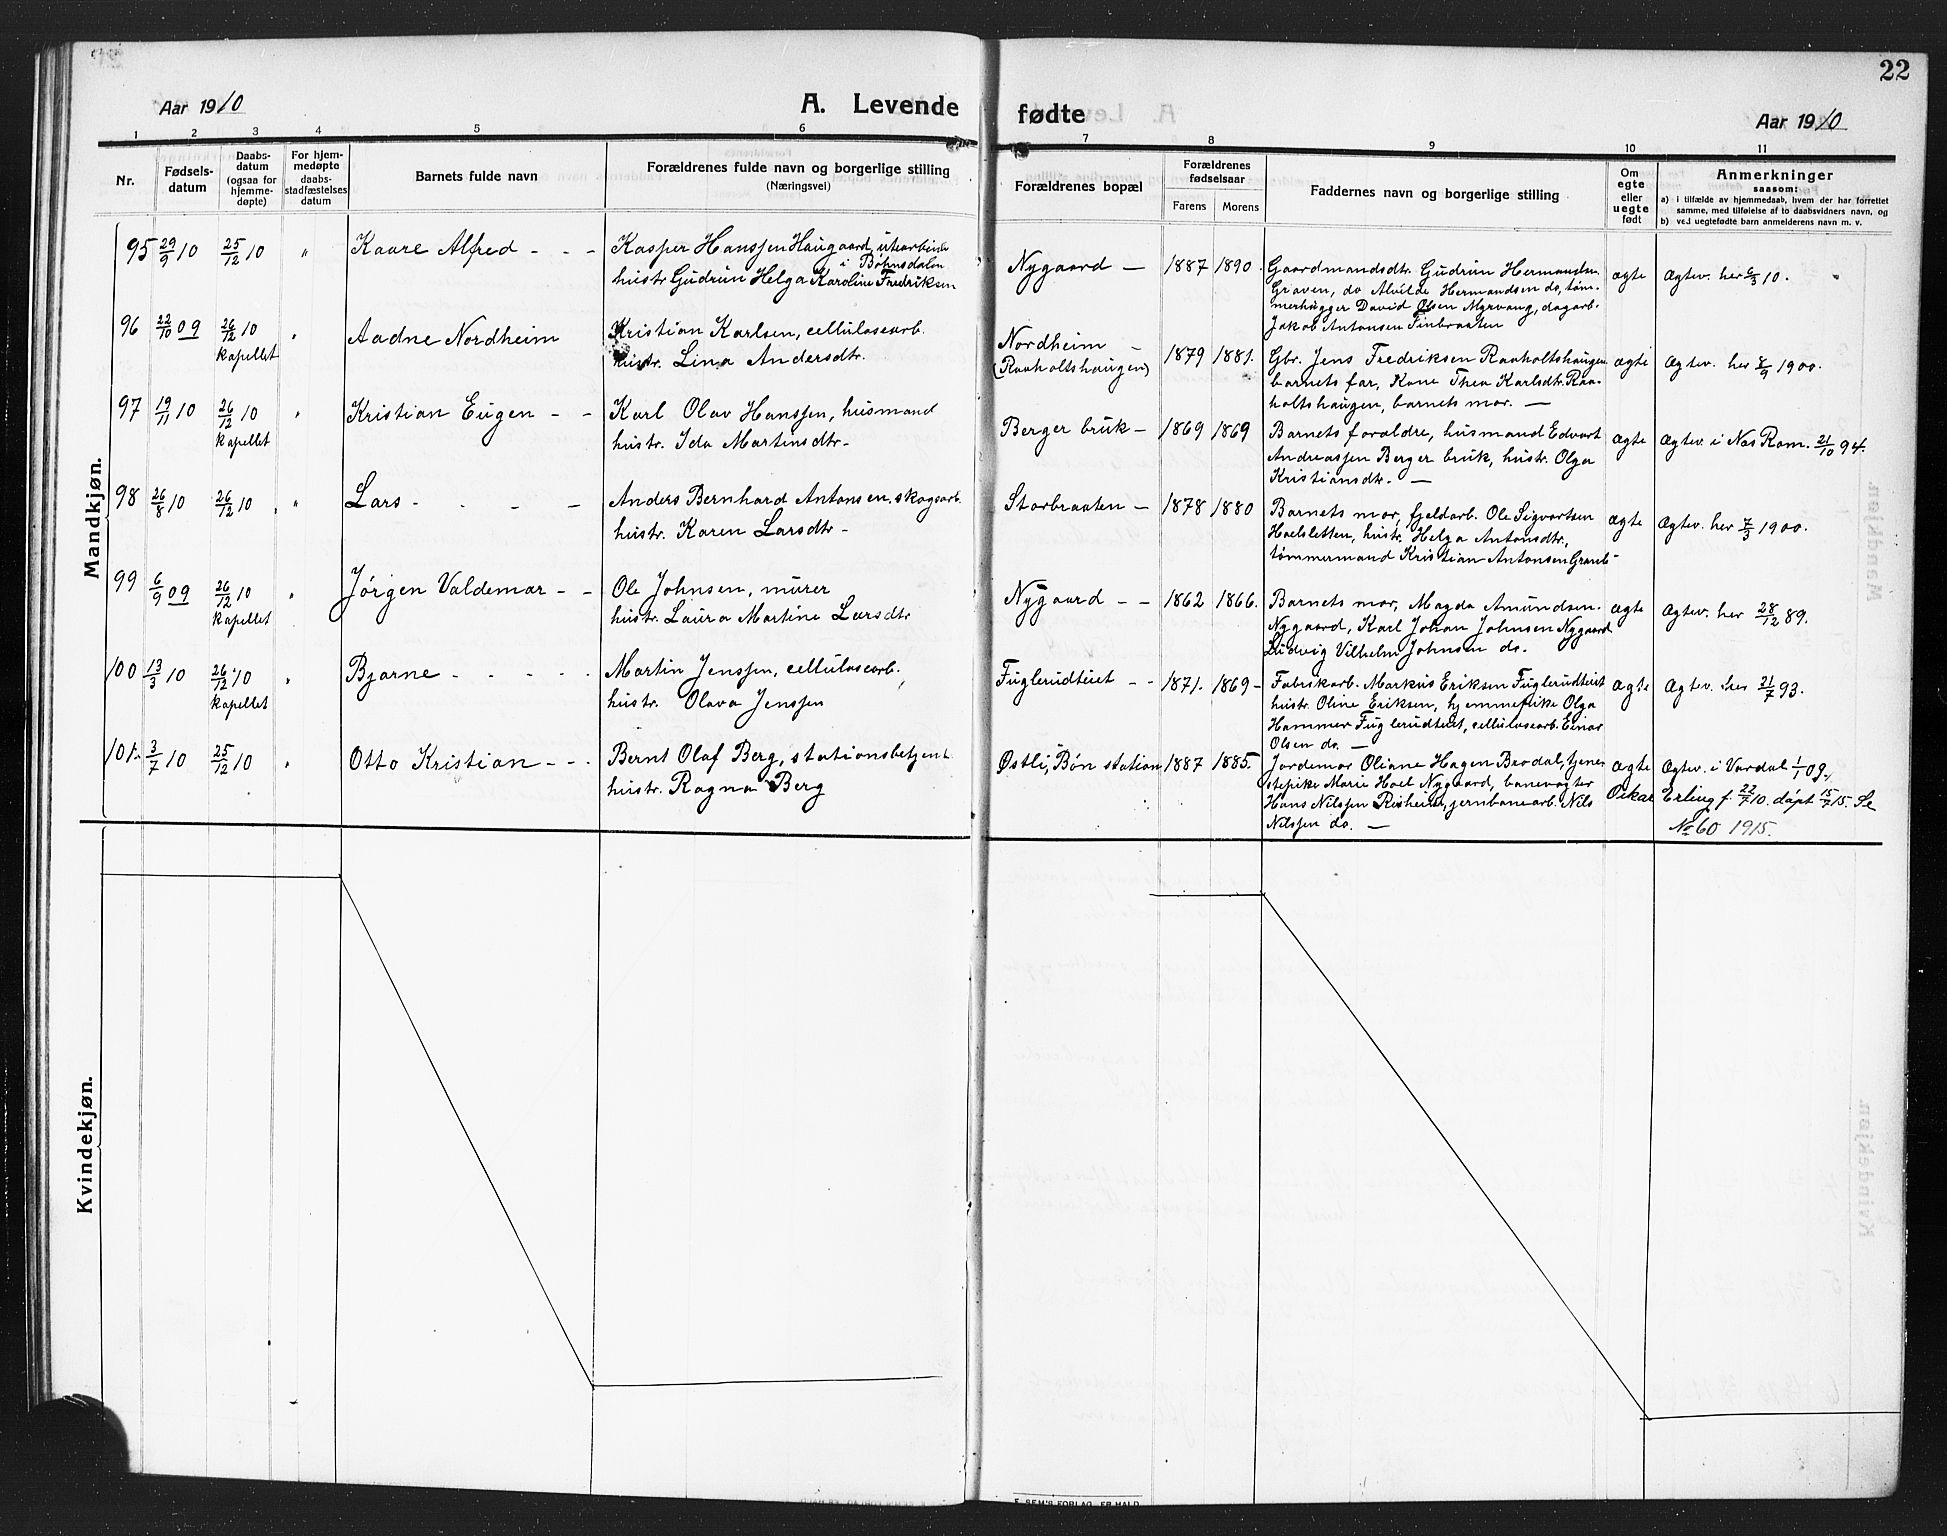 22
Aar 1910
A. Levende fødte
Aar 1910
1 2 3 4 5 6 7 8 9 10 11
Nr.
Fødsels-
datum
Daabs-
datum
(ogsaa for
hjemme-
døpte)
For hjem-
medøpte
daabs-
stadfæstelses
datum
Barnets fulde navn
Forældrenes fulde navn og borgerlige stilling
(Næringsvei)
Forældrenes bopæl
Forældrenes
fødselsaar
Farens Morens
Faddernes navn og borgerlige stilling
Om
egte
eller
uegte
født
Anmerkninger
saasom:
a) i tilfælde av hjemmedaab, hvem der har forrettet
samme, med tilføielse av to daabsvidners navn, og
b) ved uegtefødte barn anmelderens navn m. v.
Mandkjøn.
95 29/9 10 25/12 10 " Kaare Alfred - - -
Kasper Hanssen Haugaard, utearbeider
i Bøhnsdalen
hustr Gudrun Helga Karoline Fredriksen
Nygaard - 1887 1890
Gaardmandsdtr. Gudrun Hermandsen
Graven, do Alvilde Hermandsen do, tøm-
merhugger David Olsen Myrvang, dagarb.
Jakob Antonsen Finbraaten
ægte
Ægtev. her 6/3 10. "
96 22/10 09 26/12 10 " Aadne Nordheim
kapellet
Kristian Karlsen, cellulosearb.
hustr. Lina Andersdtr.
Nordheim -
(Raaholtshaugen)
1879 1881.
Gbr. Jens Fredriksen Raaholtshaugen
barnets far, Kone Thea Karlsdtr. Raa-
holtshaugen, barnets mor. -
ægte
Ægtev. her 8/9 1900.
97 19/11 10 26/12 10 " Kristian Eugen - -
kapellet
Karl Olav Hanssen, husmand
hustr. Ida Martinsdtr -
Berger bruk - 1869 1869
Barnets forældre, husmand Edvart
Andreassen Berger bruk, hustr. Olga
Kristiansdtr. -
ægte
Ægtev. i Nes Rom. 21/10 94.
98 26/8 10 26/12 10 " Lars - - - -
Anders Bernhard Antonsen, skogsarb.
hustr. Karen Larsdtr -
Storbraaten - 1878 1880
Barnets mor, fjeldarb. Ole Sigvartsen
Hoelsletten, hustr. Helga Antonsdtr,
tømmermand Kristian Antonsen
ægte
Ægtev. her 7/3 1900.
99 6/9 09 26/12 10 " Jørgen Valdemar - -
kapellet
Ole Johnsen, murer
hustr. Laura Martine Larsdtr
Nygaard - - 1862 1866.
Barnets mor, Magda Amundsen
Nygaard, Karl Johan Johnsen Nygaard
Ludvig Vilhelm Johnsen do.
ægte
Ægtev. her 28/12 89.
100 13/3 10 26/12 10 " Bjarne - - - - -
kapellet
Martin Jenssen, cellulosearb.
hustr. Olava Jenssen
Fuglerudteiet - - 1871. 1869 -
Fabrikarb. Markus Eriksen Fuglerudteiet
hustr. Oline Eriksen, hjemmepike Olga
Hammer Fuglerudteiet, cellulosearb. Einar
Olsen do. -
ægte
Ægtev. her 21/7 93.
101. 3/7 10 25/12 10 " Otto Kristian - - -
Bernt Olaf Berg, stationsbetjent
hustr. Ragna Berg
Østli, Bøn station 1887 1885.
Jordemor Oliane Hagen Brodal, tjene-
stepike Marie Hoel Nygaard, banevogter
Hans Nilssen Risheim, jernbanearb. Nils
Nilssen do. -
ægte
Ægtev. i Vardal 1/1 09.
Oskar Erling f. 22/7 10. døpt 15/7 15. Se
№ 60 1915.
Kvindekjøn.
E. SEM'S FORLAG, FR.HALD